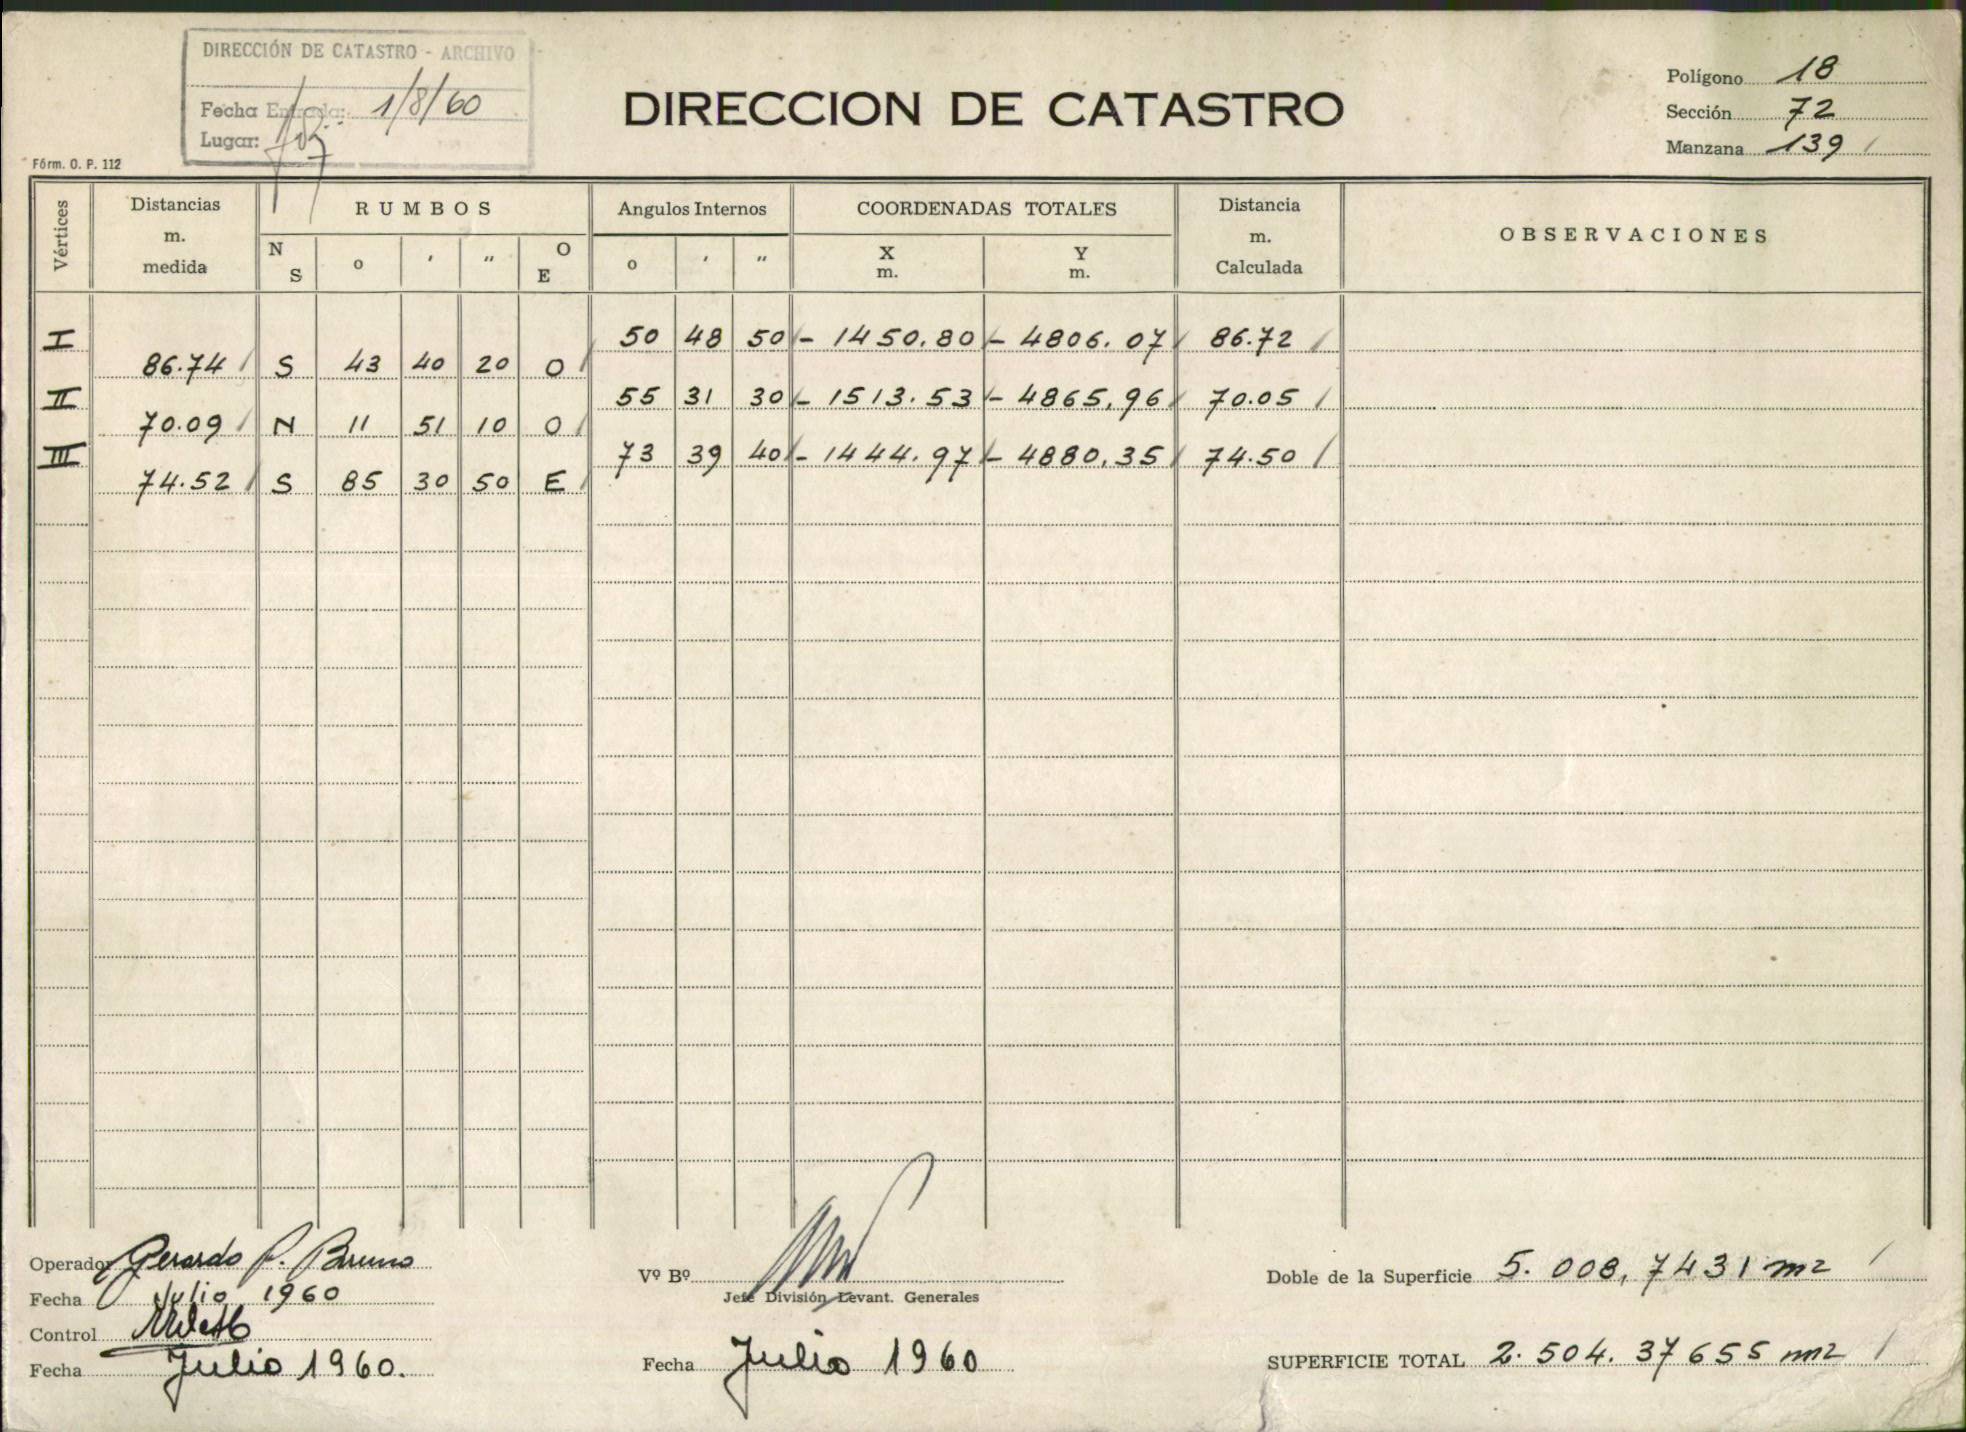 DIRECCIÓN DE CATASTRO - ARCHIVO
Fecha Entrada: 1/8/60
Lugar:
Fórm. O. P. 112
DIRECCION DE CATASTRO
Polígono 18
Sección 72
Manzana 139
Vértices Distancias m. medida RUMBOS Angulos Internos COORDENADAS TOTALES Distancia m. Calculada OBSERVACIONES
N S o ' " O E o ' " X m. Y m.
I 50 48 50 - 1450.80 - 4806.07 86.72
86.74 S 43 40 20 O
II 55 31 30 - 1513.53 - 4865.96 70.05
70.09 N 11 51 10 O
III 73 39 40 - 1444.97 - 4880.35 74.50
74.52 S 85 30 50 E
Operador Gerardo P. Bruno
Fecha Julio 1960
Control
Fecha Julio 1960.
Vº Bº
Jefe División Levant. Generales
Fecha Julio 1960
Doble de la Superficie 5.008,7431 m2
SUPERFICIE TOTAL 2.504.37655 m2